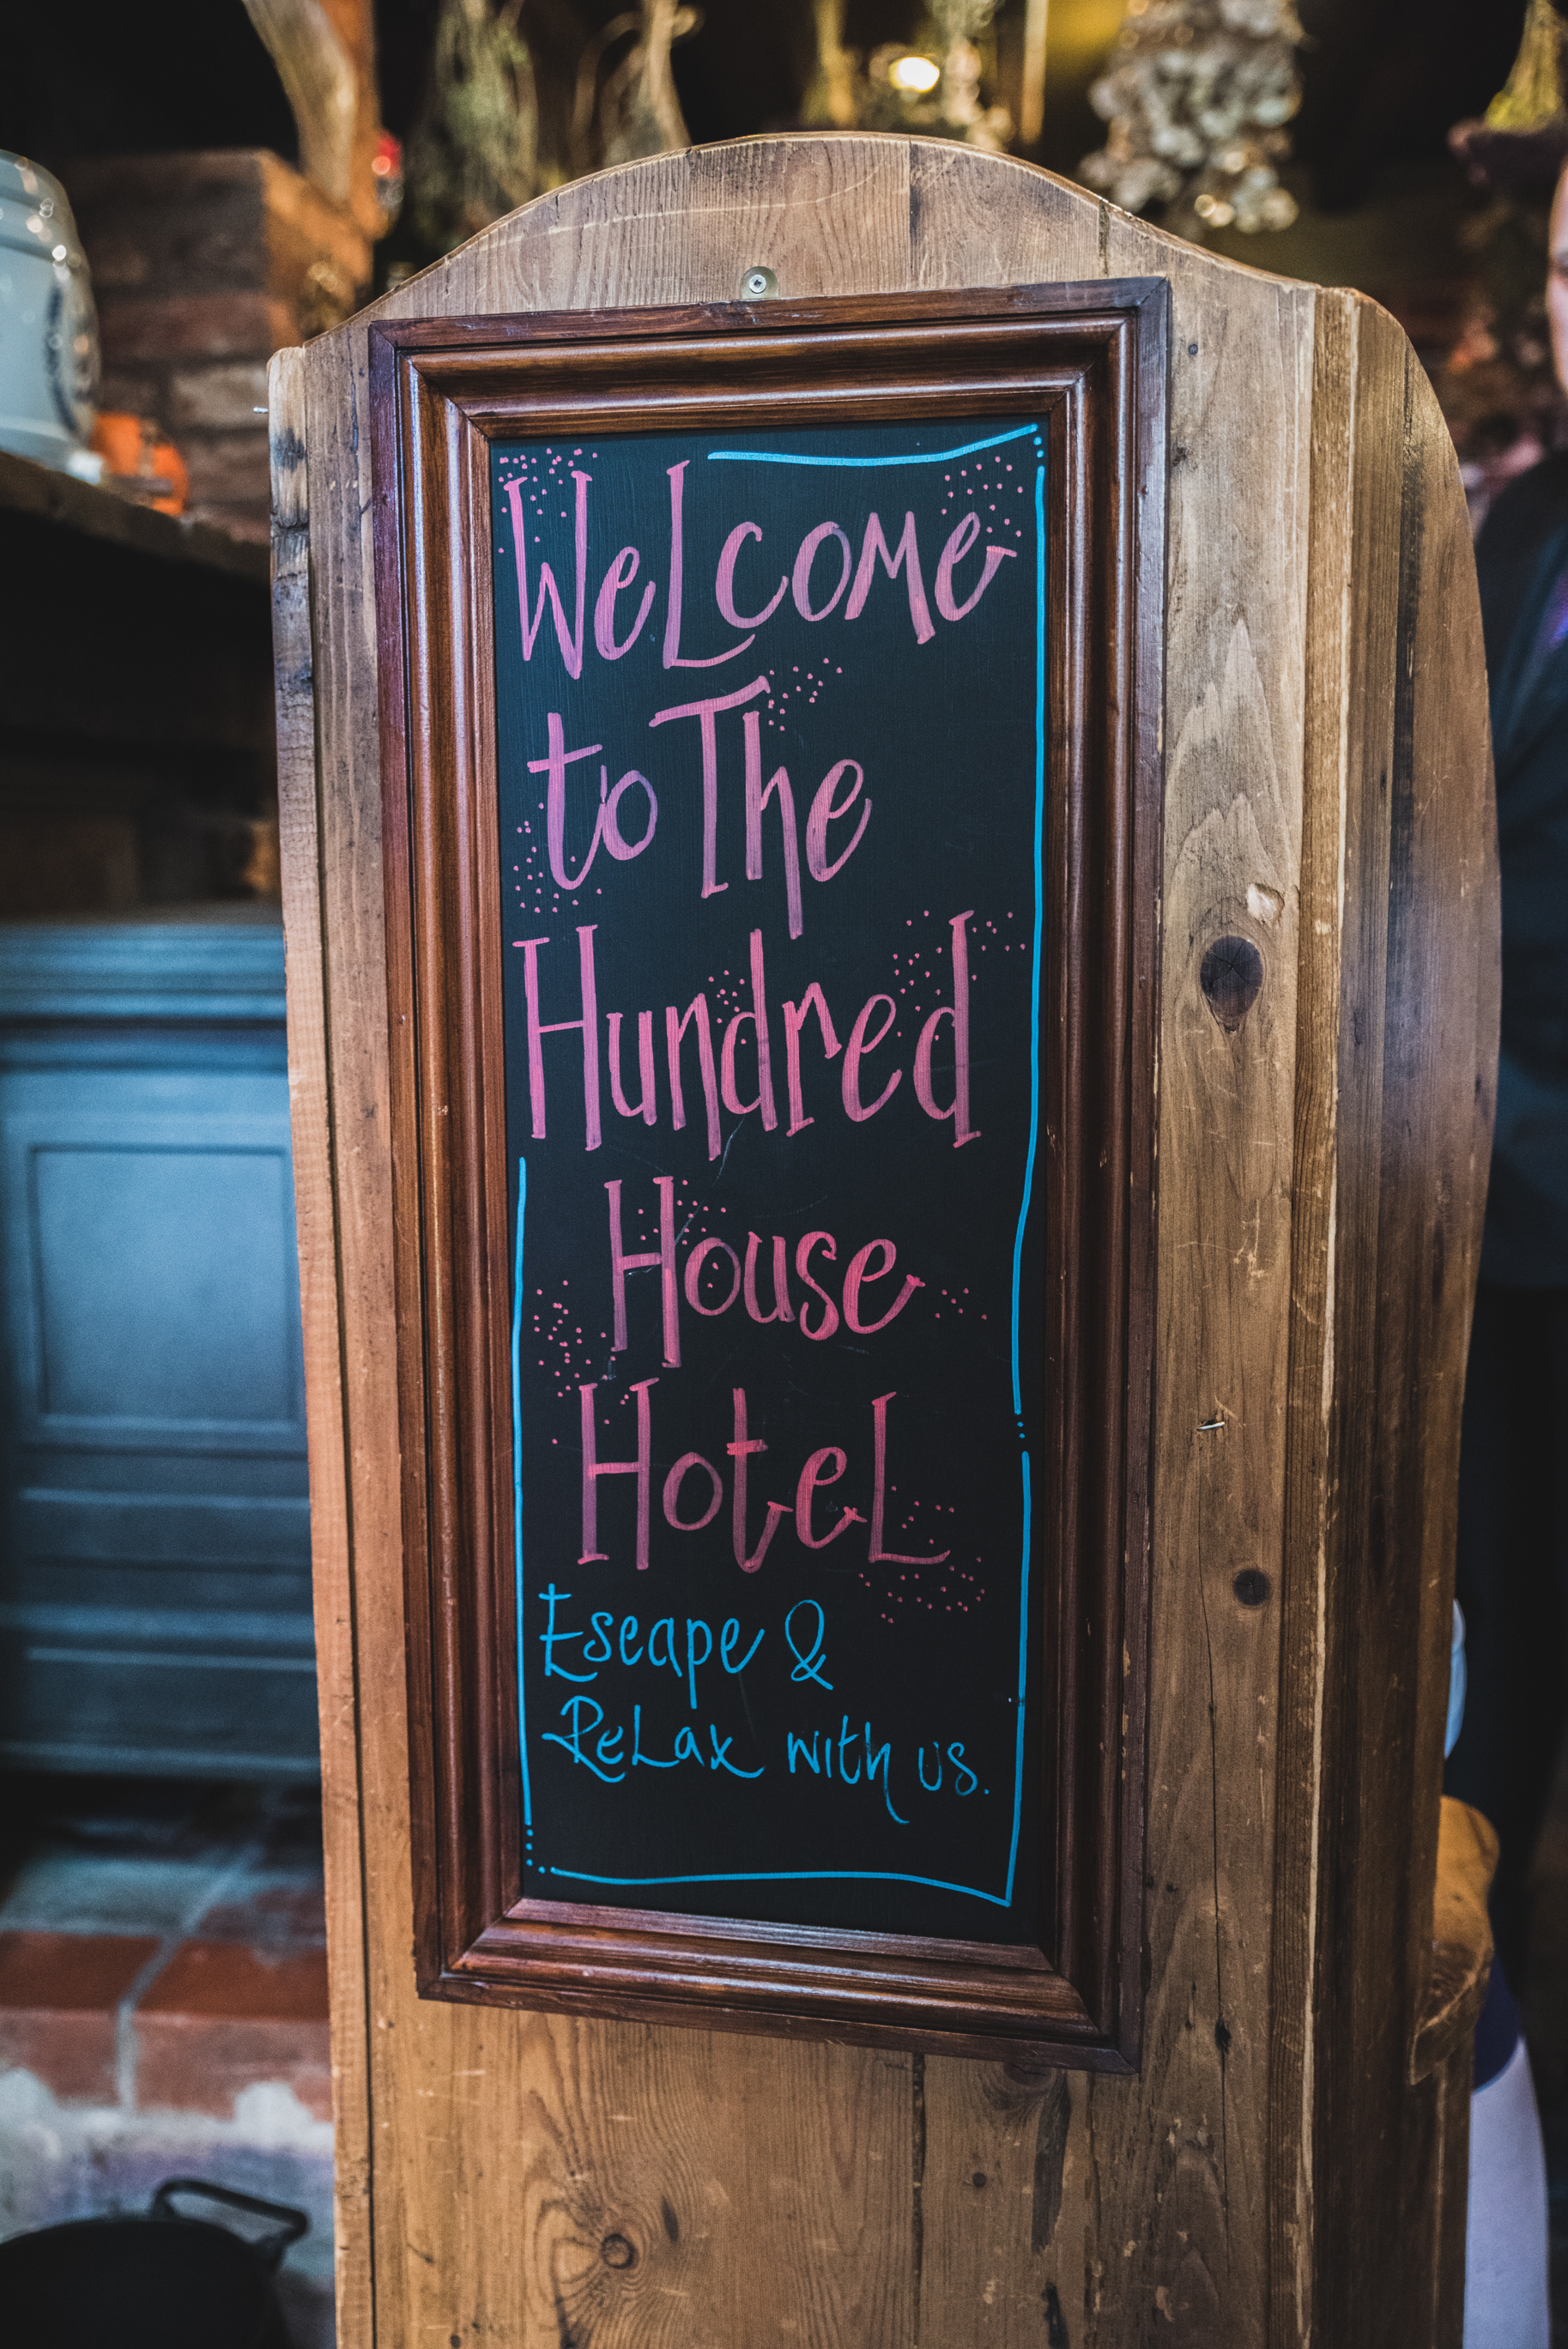 WeLcoMe
to The
Hundred
House
HoteL
Escape &
ReLax with us.